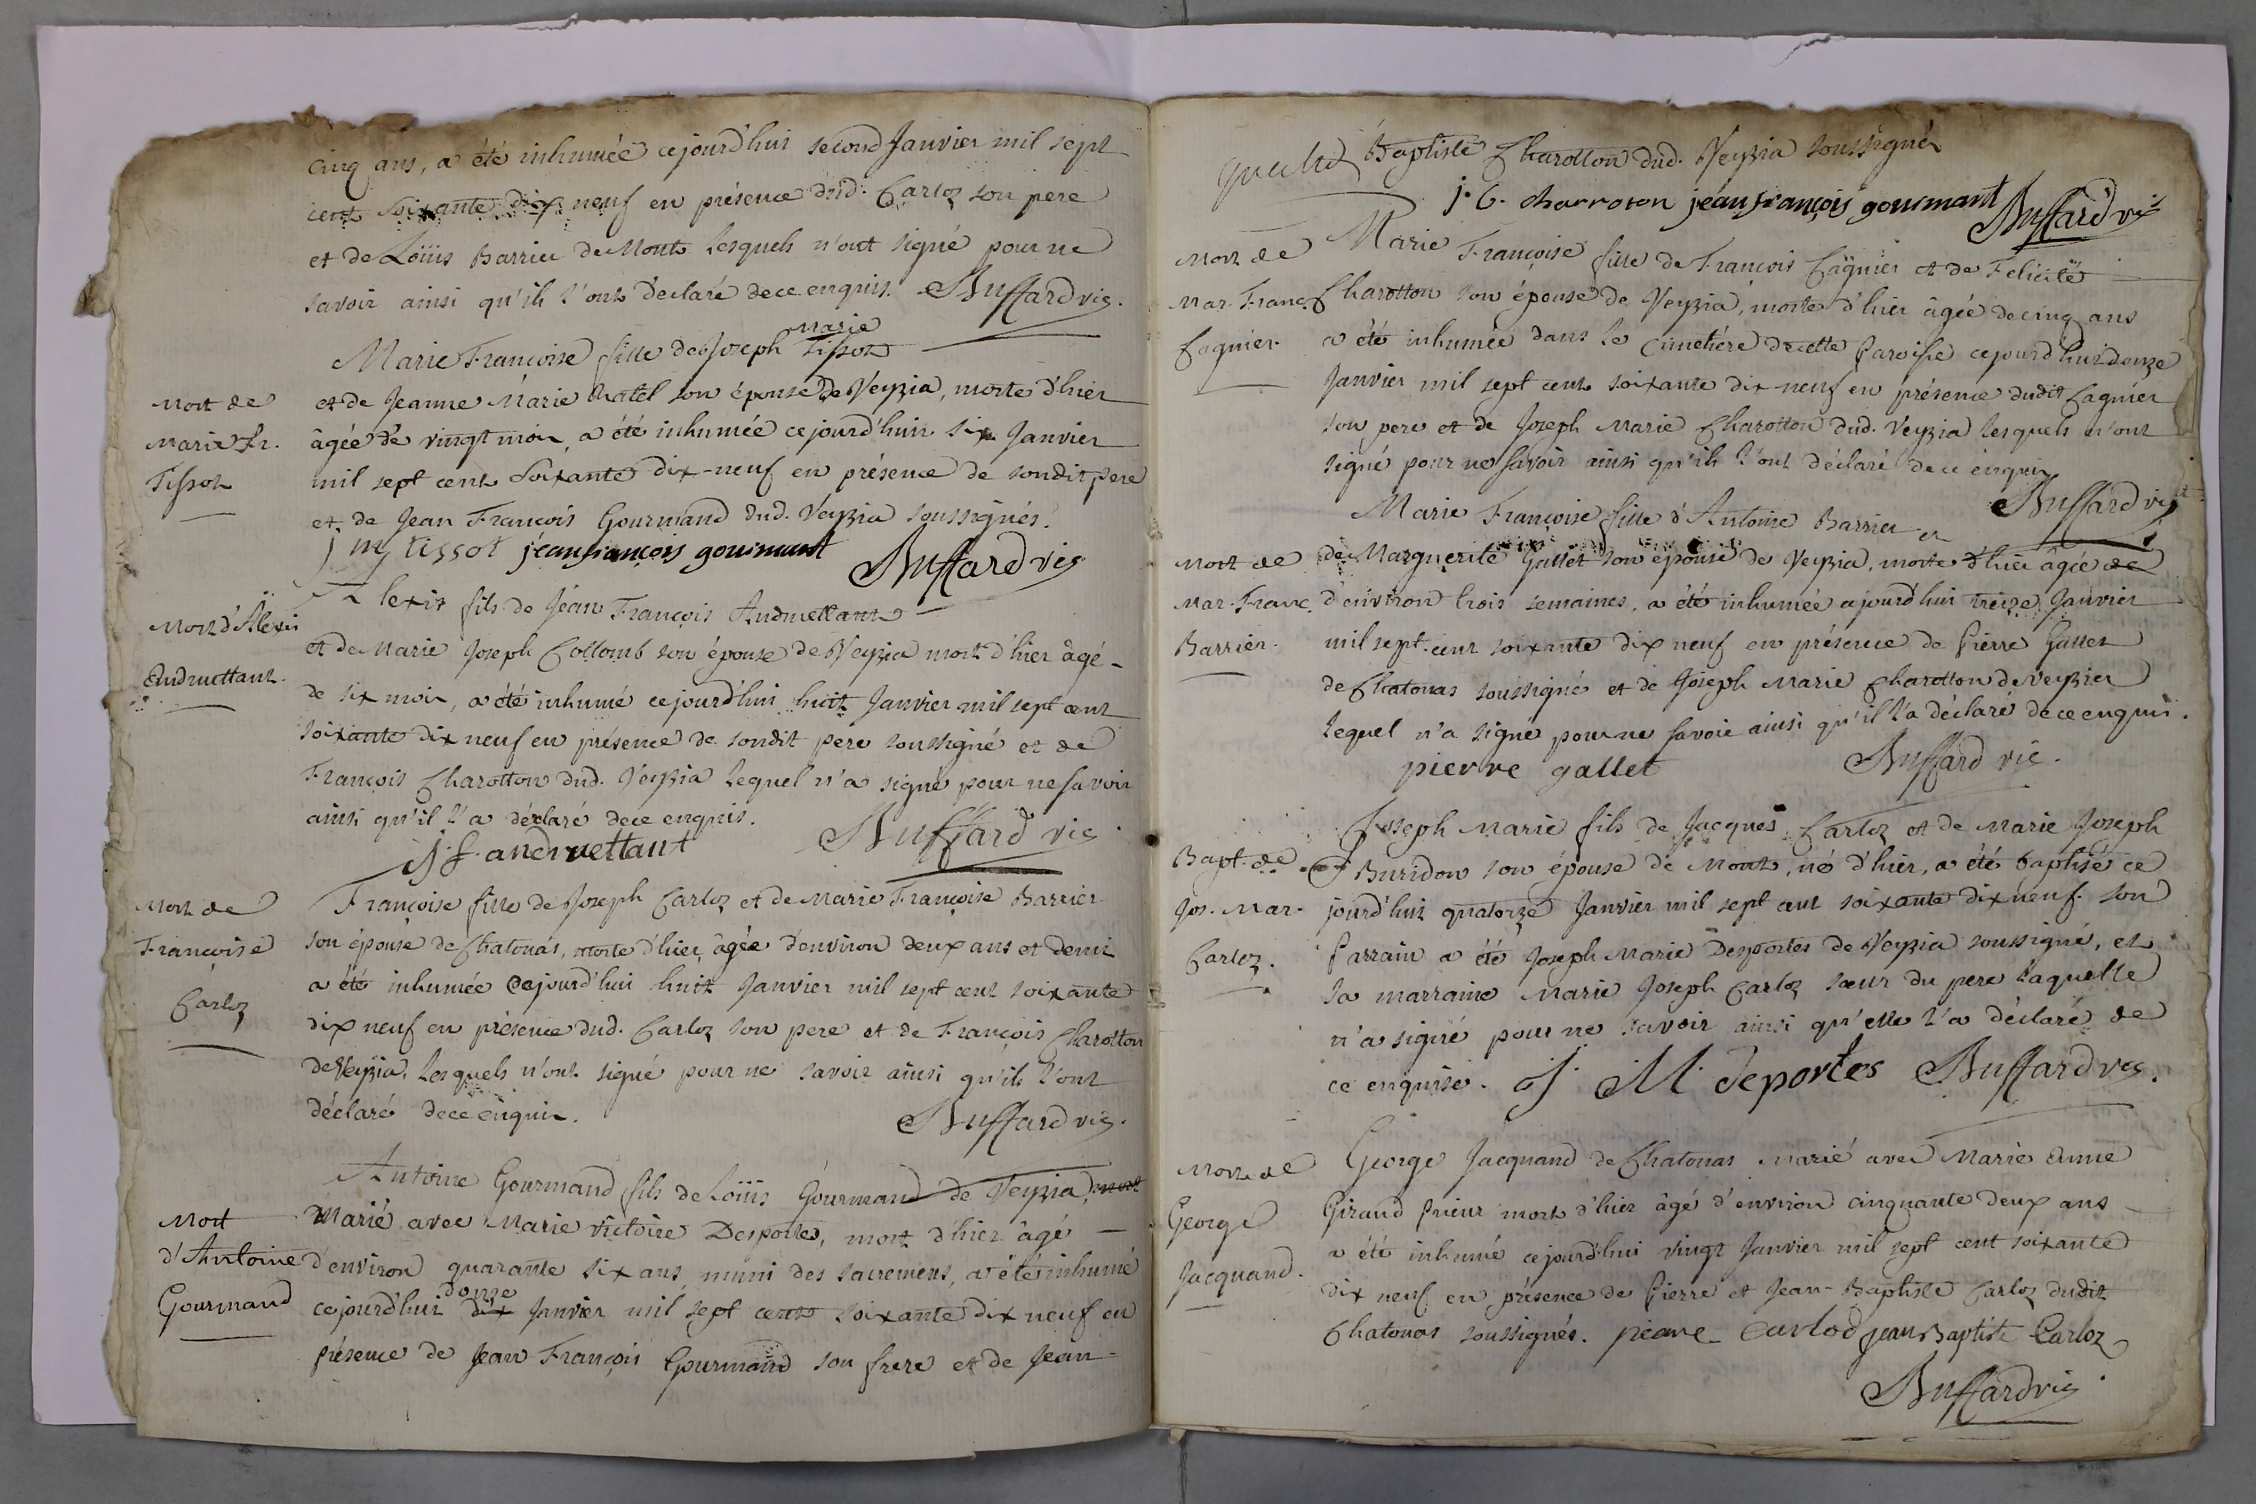 cinq ans, a été inhumée cejourd'hui second Janvier mil sept
cent soixante dix neuf en présence dud. Carloz son pere
et de Loüis Barrier de Mont lesquels n'ont signé pour ne
savoir ainsi qu'ils l'ont déclaré de ce enquis. Buffard vic.
Marie
Marie Françoise fille de Joseph Tissot
Mort de
Marie Fr.
Tissot
et de Jeanne Marie Chatel son épouse de Veyzia, morte d'hier
âgée de vingt mois, a été inhumée cejourd'hui six Janvier
mil sept cent soixante dix-neuf en présence de sondit pere
et de Jean François Gourmand dud. Veyzia soussignés.
j m tissot jean françois gourmant Buffard vic
Alexis fils de Jean François Andruettant
Mort d'Alexis
Andruettant.
et de Marie Joseph Collomb son épouse de Veyzia mort d'hier âgé
de six mois, a été inhumé cejourd'hui huit Janvier mil sept cent
soixante dix neuf en présence de sondit pere soussigné et de
François Charotton dud. Veyzia lequel n'a signé pour ne savoir
ainsi qu'il l'a déclaré de ce enquis.
J f. andruettant Buffard vic
Mort de
Françoise
Carloz
Françoise fille de Joseph Carloz et de Marie Françoise Barrier
son épouse de Chatonas, morte d'hier, âgée d'environ deux ans et demi
a été inhumée cejourd'hui huit Janvier mil sept cent soixante
dix neuf en présence dud. Carloz son pere et de François Charotton
de Veyzia, lesquels n'ont signé pour ne savoir ainsi qu'ils l'ont
déclaré de ce enquis.
Buffard vic.
Antoine Gourmand fils de Loüis Gourmand de Veyzia, mort
Mort
d'Antoine
Gourmand
Marié avec Marie victoire Desportes, mort d'hier âgé
d'environ quarante six ans, muni des sacremens, a été inhumé
douze
cejourd'hui dix Janvier mil sept cent soixante dix neuf en
présence de Jean François Gourmand son frere et de Jean-
Baptiste Charotton dud. Veyzia soussignés
j. b. charroton jean françois gourmant Buffard vic
Mort de
Mar. Franc.
Cagnier.
Marie Françoise fille de François Cagnier et de Felicité
Charotton son épouse de Veyzia, morte d'hier âgée de cinq ans
a été inhumée dans le cimetière de cette Paroisse cejourd'hui douze
Janvier mil sept cent soixante dix neuf en présence dudit Cagnier
son pere et de Joseph Marie Charotton dud. Veyzia lesquels n'ont
signé pour ne savoir ainsi qu'ils l'ont déclaré de ce enquis
Buffard vic
Marie Françoise fille d'Antoine Barrier et
Mort de
Mar. Franc.
Barrier.
de Marguerite Gallet son épouse de Veyzia, morte d'hier âgée de
d'environ trois semaines, a été inhumée cejourd'hui treize Janvier
mil sept cent soixante dix neuf en présence de Pierre Gallet
de Chatonas soussigné et de Joseph Marie Charotton de Veyzia
lequel n'a signé pour ne savoir ainsi qu'il l'a déclaré de ce enquis.
pierre gallet Buffard vic.
Bapt. de
Jos. Mar.
Carloz.
Joseph Marie fils de Jacques Carloz et de Marie Joseph
Buridon son épouse de Mont, né d'hier, a été baptisé ce
jourd'hui quatorze Janvier mil sept cent soixante dix neuf. son
Parrain a été Joseph Marie Desportes de Veyzia soussigné, et
sa marraine Marie Joseph Carloz sœur du pere laquelle
n'a signé pour ne savoir ainsi qu'elle l'a déclaré de
ce enquise. J. M. deportes Buffard vic.
Mort de
George
Jacquand.
George Jacquand de Chatonas Marié avec Marie Anne
Giraud Prieur mort d'hier âgé d'environ cinquante deux ans
a été inhumé cejourd'hui vingt Janvier mil sept cent soixante
dix neuf en présence de Pierre et Jean-Baptiste Carloz dudit
Chatonas soussignés. pieare Carlod jean Baptiste Carloz
Buffard vic.